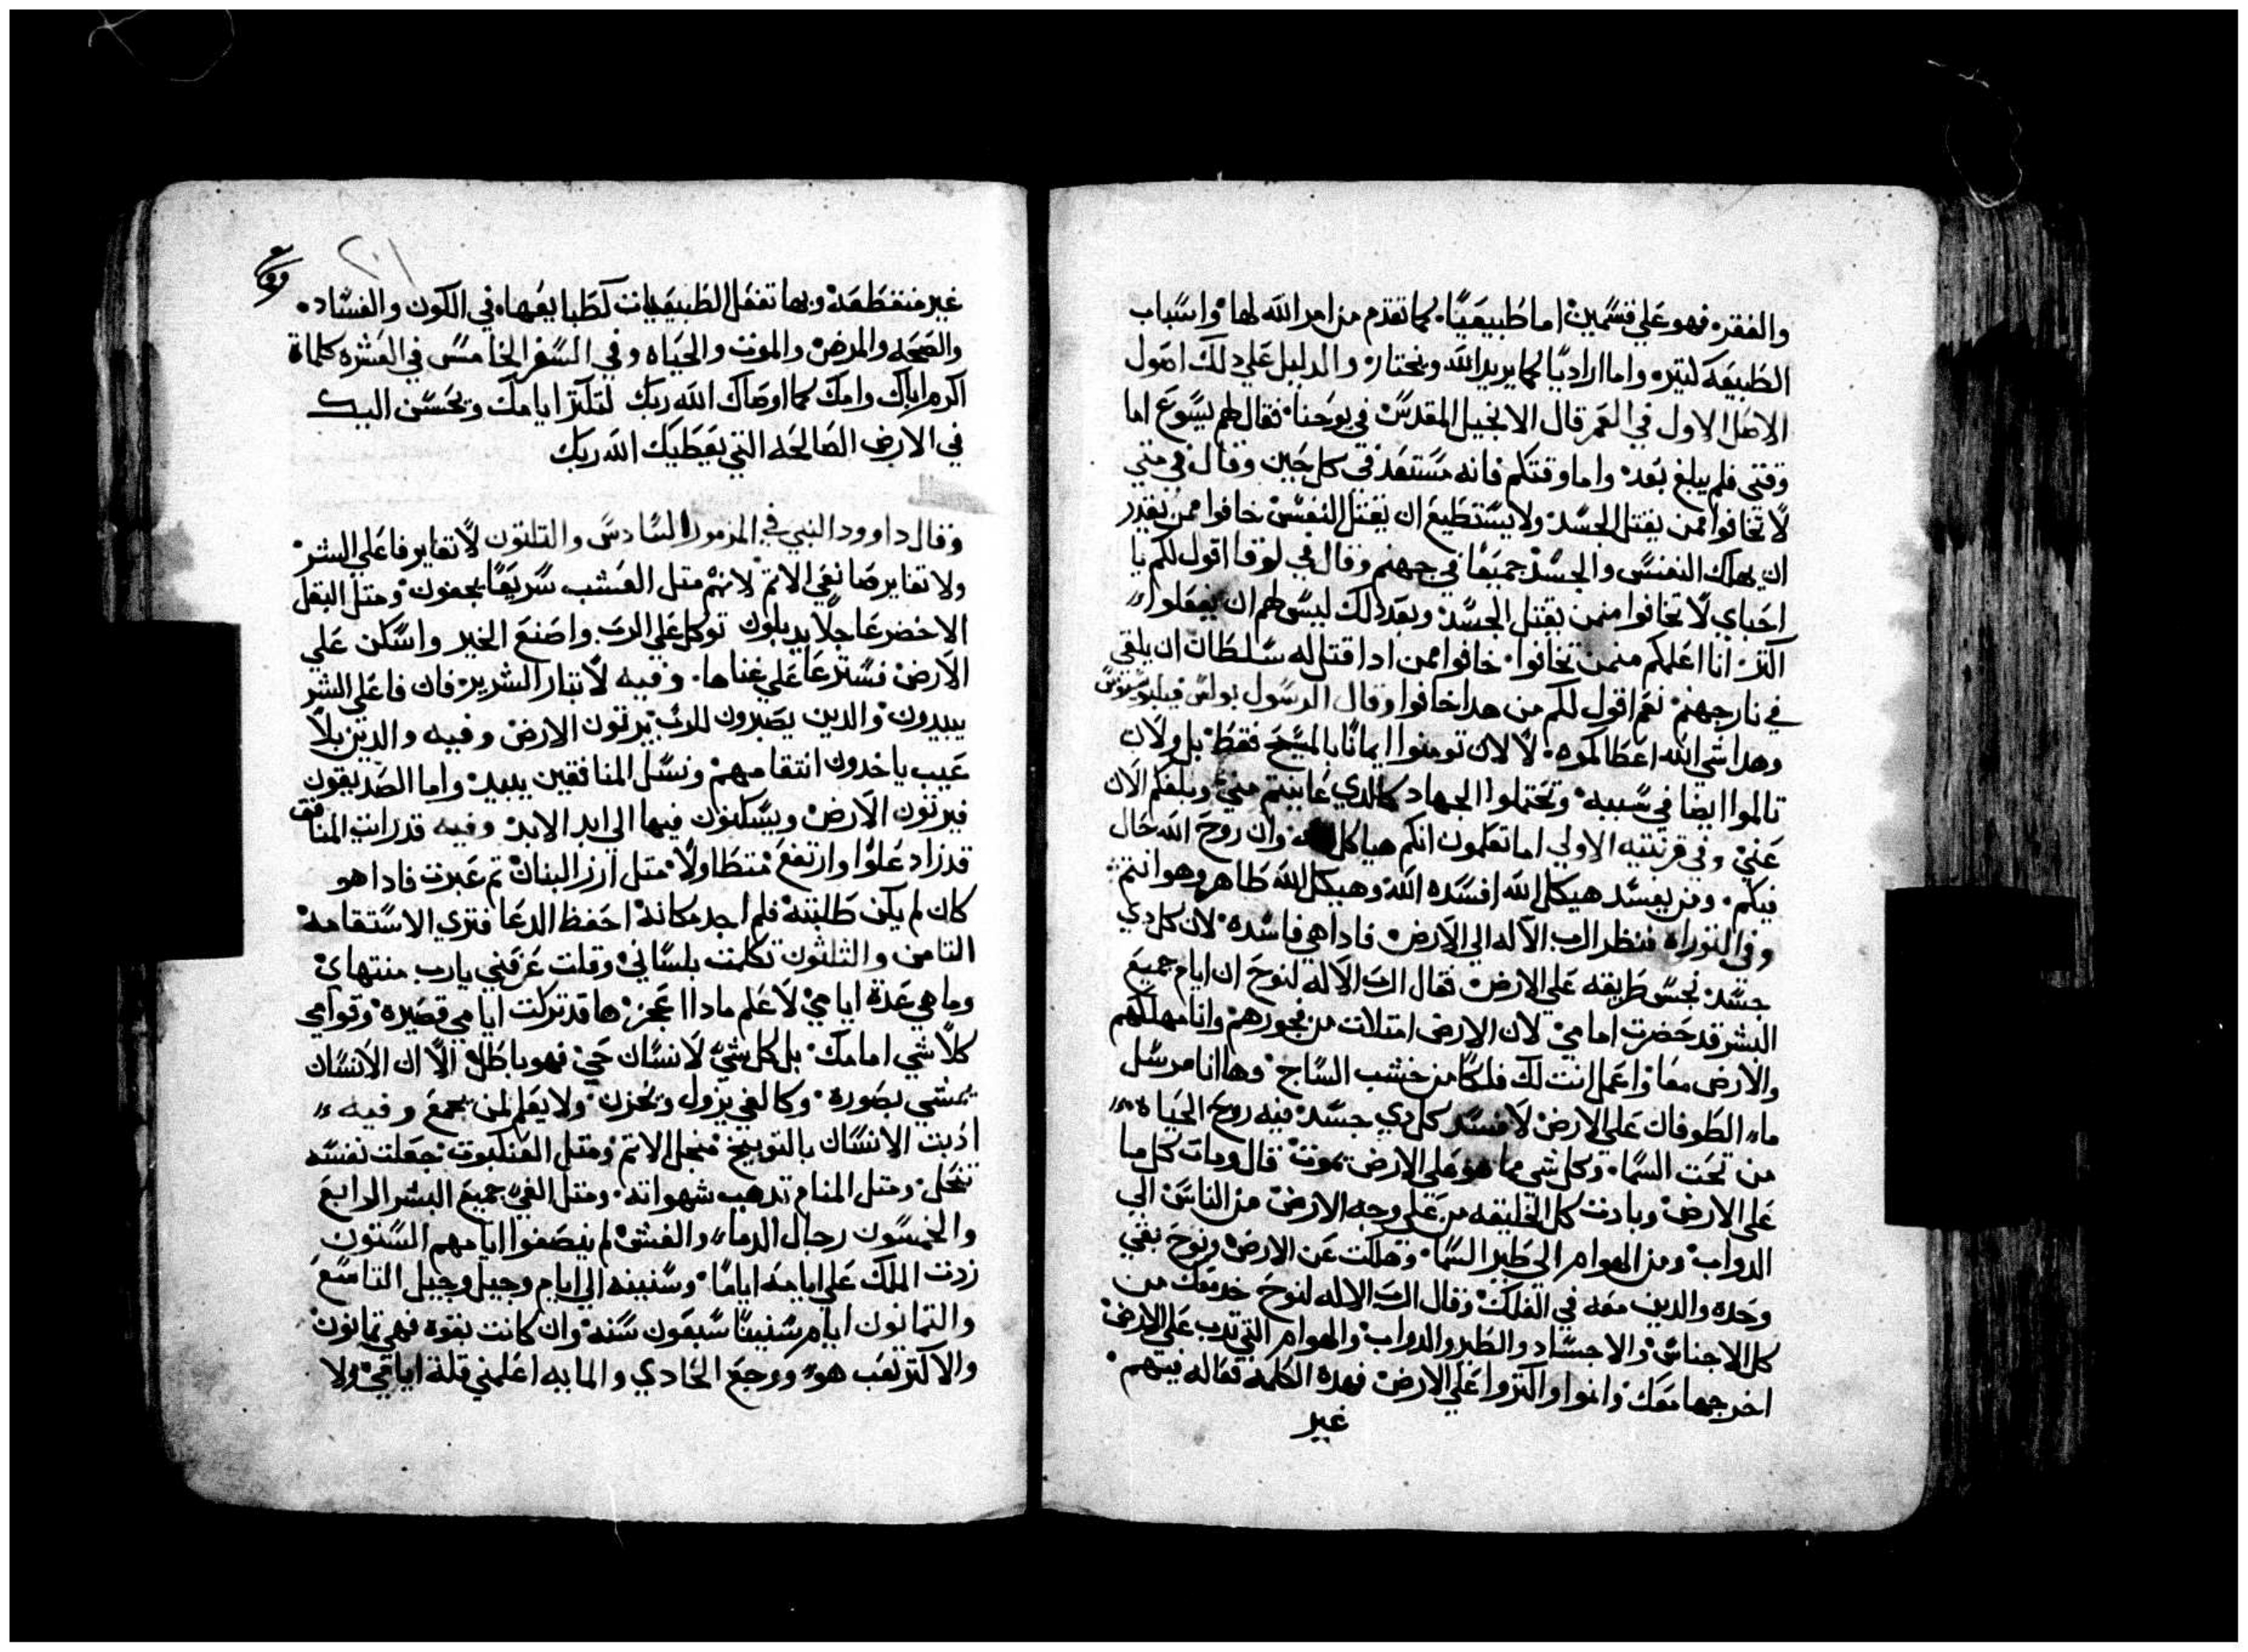 والفقر فهو علي قسمين اما طبيعيًا كما تقدم من امر الله لها واسباب
الطبيعه كتيره واما اراديًا كما يريد الله ويختار والدليل علي دلك اصول
الاصل الاول في العمر قال الانجيل المقدس في يوحنا فقال لهم يسوع اما
وقتي فلم يبلغ بعد واما وقتكم فانه مستعد في كل حين وقال في متي
لا تخافوا ممن يقتل الجسد ولا يستطيع ان يقتل النفس خافوا ممن يقدر
ان يهلك النفس والجسد جميعًا في جهنم وقال في لوقا اقول لكم يا
احباي لا تخافوا منمن يقتل الجسد وبعد دلك ليس لهم ان يفعلوا
اكتر انا اعلمكم منمن تخافوا خافوا ممن ادا قتل له سلطان ان يلقي
في نار جهنم نعم اقول لكم من هدا خافوا وقال الرسول بولس
وهدا شي الله اعطاكموه لا لان تومنوا ايمانًا بالمسيح فقط بل ولان
تالموا ايضا في سببه وتحتملوا الجهاد كالدي عاينتم مني وبلغكم الان
عني وفي قرنتيه الاولي اما تعلمون انكم هياكل وان روح الله حال
فيكم ومن يفسد هيكل الله افسده الله وهيكل الله طاهر وهو انتم
وفي التوراه فنظر الرب الاله الي الارض فادا هي فاسده لان كل دي
جسد نجس طريقه علي الارض فقال الرب الاله لنوح ان ايام جميع
البشر قد حضرت امامي لان الارض امتلات من فجورهم وانا مهلكهم
والارض معا واعمل انت لك فلكًا من خشب الساج وها انا مرسل
ماء الطوفان علي الارض لافسد كل دي جسد فيه روح الحياه
من تحت السما وكل شي مما هو علي الارض تموت قال ومات كل ما
علي الارض وبادت كل الخليقه من علي وجه الارض من الناس الي
الدواب ومن الهوام الي طير السما وهلكت عن الارض ونوح بقي
وحده والدين معه في الفلك وقال الرب الاله لنوح خد معك من
كل الاجناس والاجساد والطير والدواب والهوام التي تدب علي الارض
اخرجها معك وانموا واكتروا علي الارض فهده الكلمه فعاله فيهم
غير
٢٠١
غير منقطعه وبها تفعل الطبيعيات كطبايعها في الكون والفساد
والصحه والمرض والموت والحياه وفي السفر الخامس في العشره كلماة
اكرم اباك وامك كما اوصاك الله ربك لتكتر ايامك وتحسن اليك
في الارض الصالحه التي يعطيك الله ربك
وقال داوود النبي في المزمور السادس والتلتون لا تغاير فاعلي الشر
ولا تغاير صانعي الاتم لانهم متل العشب سريعًا يجفون ومتل البقل
الاخضر عاجلًا يدبلون توكل علي الرب واصنع الخير واسكن علي
الارض فسترعا علي غناها وفيه لا تبار الشرير فان فاعلي الشر
يبيدون والدين يصبرون للرب يرتون الارض وفيه والدين بلا
عيب ياخدون انتقامهم ونسل المنافقين يبيد واما الصديقون
فيرتون الارض ويسكنون فيها الي ابد الابد وفيه قد رايت المنافق
قد زاد علوًا وارتفع متطاولًا متل ارز البنان تم عبرت فادا هو
كان لم يكن طلبته فلم اجد مكانه احفظ الدعا فتري الاستقامه
التامن والتلتون تكلمت بلساني وقلت عرفني يارب منتهاي
وما هي عدة ايامي لا علم مادا اعجز ها قد تركت ايامي قصيره وقوامي
كلا شي امامك بل كل شي لانسان حي فهو باطل الا ان الانسان
يمشي بصوره وكالفي يزول ويحزن ولا يعلم لمن يجمع وفيه
ادبت الانسان بالتوبيخ منجل الاتم ومتل العنكبوت جعلت نفسه
تنحل ومتل المنام تدهب شهواته ومتل الفي جميع البشر الرابع
والخمسون رجال الدماء والغش لم ينصفوا ايامهم الستون
زدت الملك علي ايامه ايامًا وسنينه الي ايام وجيل وجيل التاسع
والتمانون ايام سنينا سبعون سنه وان كانت بقوه فهي تمانون
والاكتر تعب هو ووجع الحادي والمايه اعلمني قلة ايامي ولا